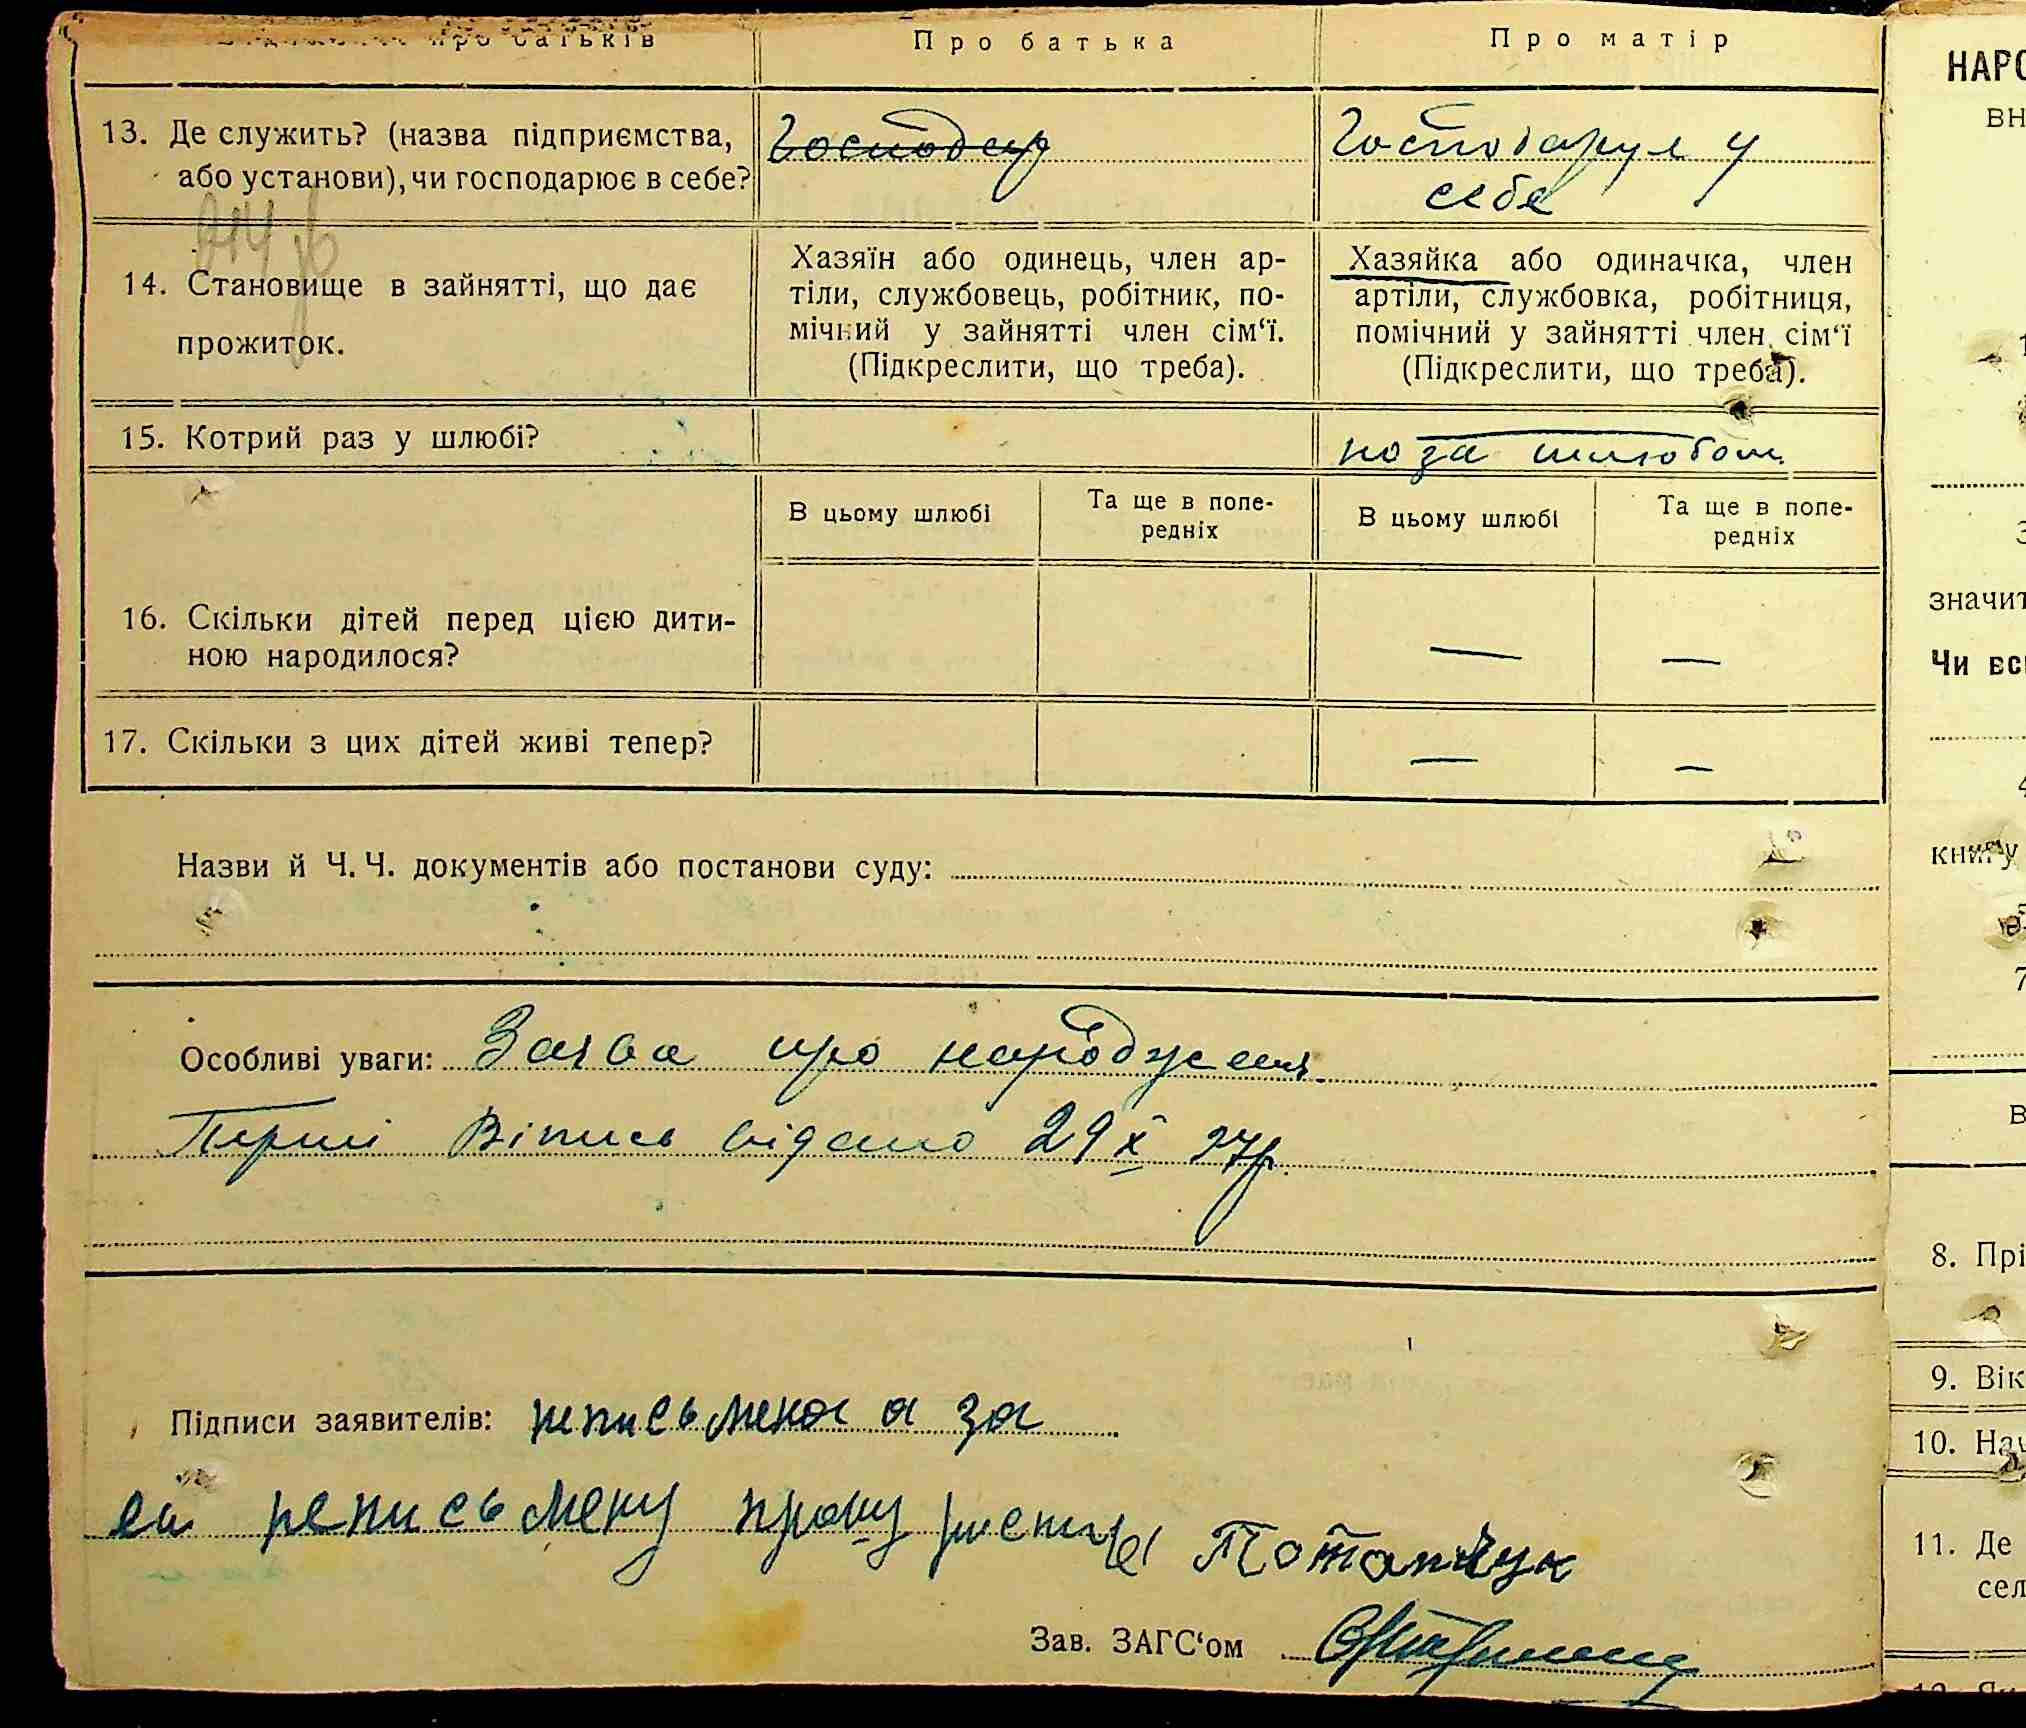 про батьків Про батька Про матір
13. Де служить? (назва підприємства, або установи), чи господарює в себе? Господар Господарує у себе
14. Становище в зайнятті, що дає прожиток.
Хазяїн або одинець, член ар-
тіли, службовець, робітник, по-
мічний у зайнятті член сім‘ї.
(Підкреслити, що треба).
Хазяйка або одиначка, член
артіли, службовка, робітниця,
помічний у зайнятті член сім‘ї
(Підкреслити, що треба).
15. Котрий раз у шлюбі? поза шлюбом
В цьому шлюбі Та ще в попе-
редніх
В цьому шлюбі Та ще в попе-
редніх
16. Скільки дітей перед цією дити-
ною народилося? — —
17. Скільки з цих дітей живі тепер? — —
Назви й Ч. Ч. документів або постанови суду:
Особливі уваги: Заява про народження
Перші Віпись відано 29 X 27р.
Підписи заявителів: а за
Потапчук
Зав. ЗАГС‘ом
НАРО
вн
значит
Чи всі
книгу
7
В
8. Прі
9. Вік
10. На
11. Де
сел